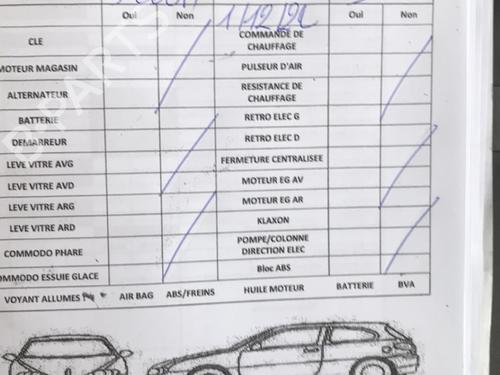 Oui Non 1/12/22 Oui Non
CLE COMMANDE DE CHAUFFAGE
MOTEUR MAGASIN PULSEUR D'AIR
ALTERNATEUR RESISTANCE DE CHAUFFAGE
BATTERIE RETRO ELEC G
DEMARREUR RETRO ELEC D
LEVE VITRE AVG FERMETURE CENTRALISEE
LEVE VITRE AVD MOTEUR EG AV
LEVE VITRE ARG MOTEUR EG AR
LEVE VITRE ARD KLAXON
COMMODO PHARE POMPE/COLONNE DIRECTION ELEC
OMMODO ESSUIE GLACE Bloc ABS
VOYANT ALLUMES AIR BAG ABS/FREINS HUILE MOTEUR BATTERIE BVA